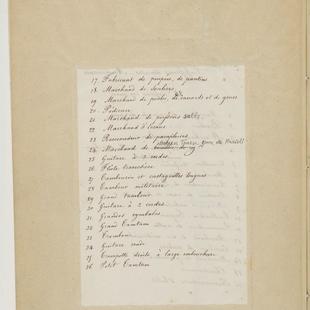 17 Fabricant de poupées, de pantins
18 Marchand de souliers
19 Marchand de poules, de canards et de grues
20 Pédicure
21 Marchand de poissons salés
22 Marchand d'écrans
23 Raccommodeur de parapluies
24 Marchand de
25 Guitare à 3 cordes
26 Flute traversière
27 Tambourin et castagnettes longues
28 Tambour militaire
29 Grand tambour
30 Guitare à 2 cordes
31 Grandes cymbales
32 Grand Tamtam
33 Trombone
34 Guitare ronde
35 Trompette droite à large embouchure
36 Petit Tamtam